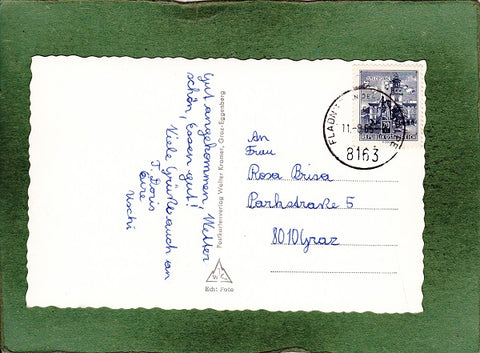 Gut angekommen, Wetter
schön, Essen gut!
Viele Grüße auch an
T. Doris
Eure
Uschi
Postkartenverlag Walter Kramer, Graz-Eggenberg
W K
Echt Foto
An
Frau
Rosa Brisa
Parkstraße 5
8010 Graz
REPUBLIK ÖSTERREICH
FLADN
11.-9.
8163